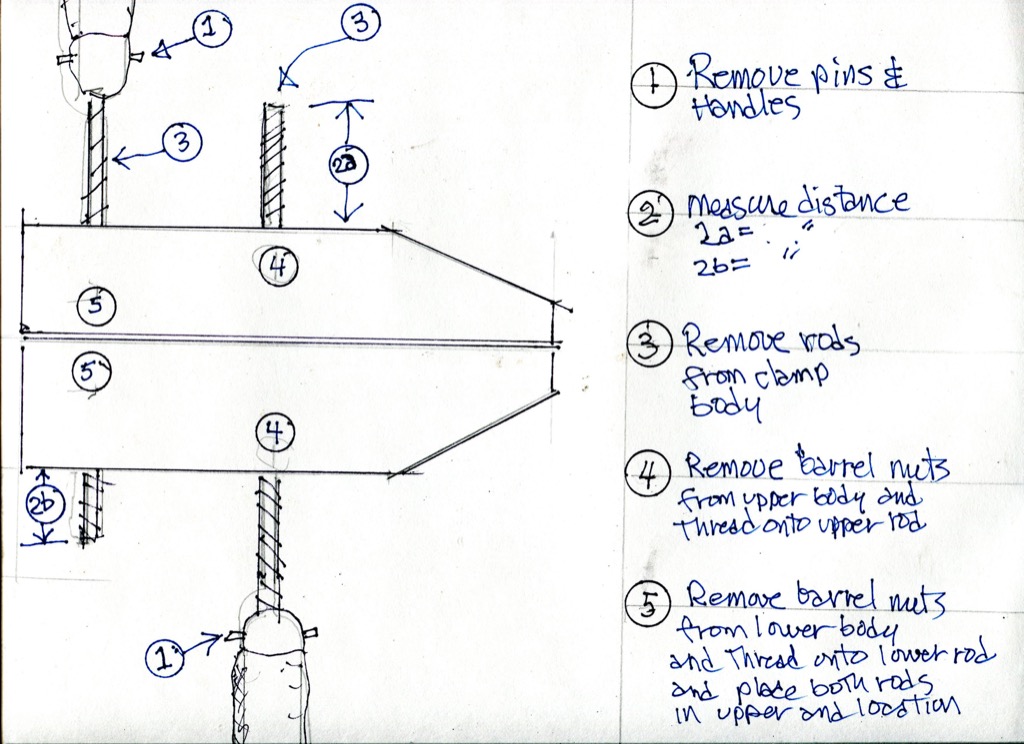 1
3
3
2a
4
5
5
4
2b
1
1 Remove pins &
Handles
2 measure distance
2a= "
2b= "
3 Remove rods
from clamp
body
4 Remove barrel nuts
from upper body and
Thread onto upper rod
5 Remove barrel nuts
from lower body
and Thread onto lower rod
and place both rods
in upper and location